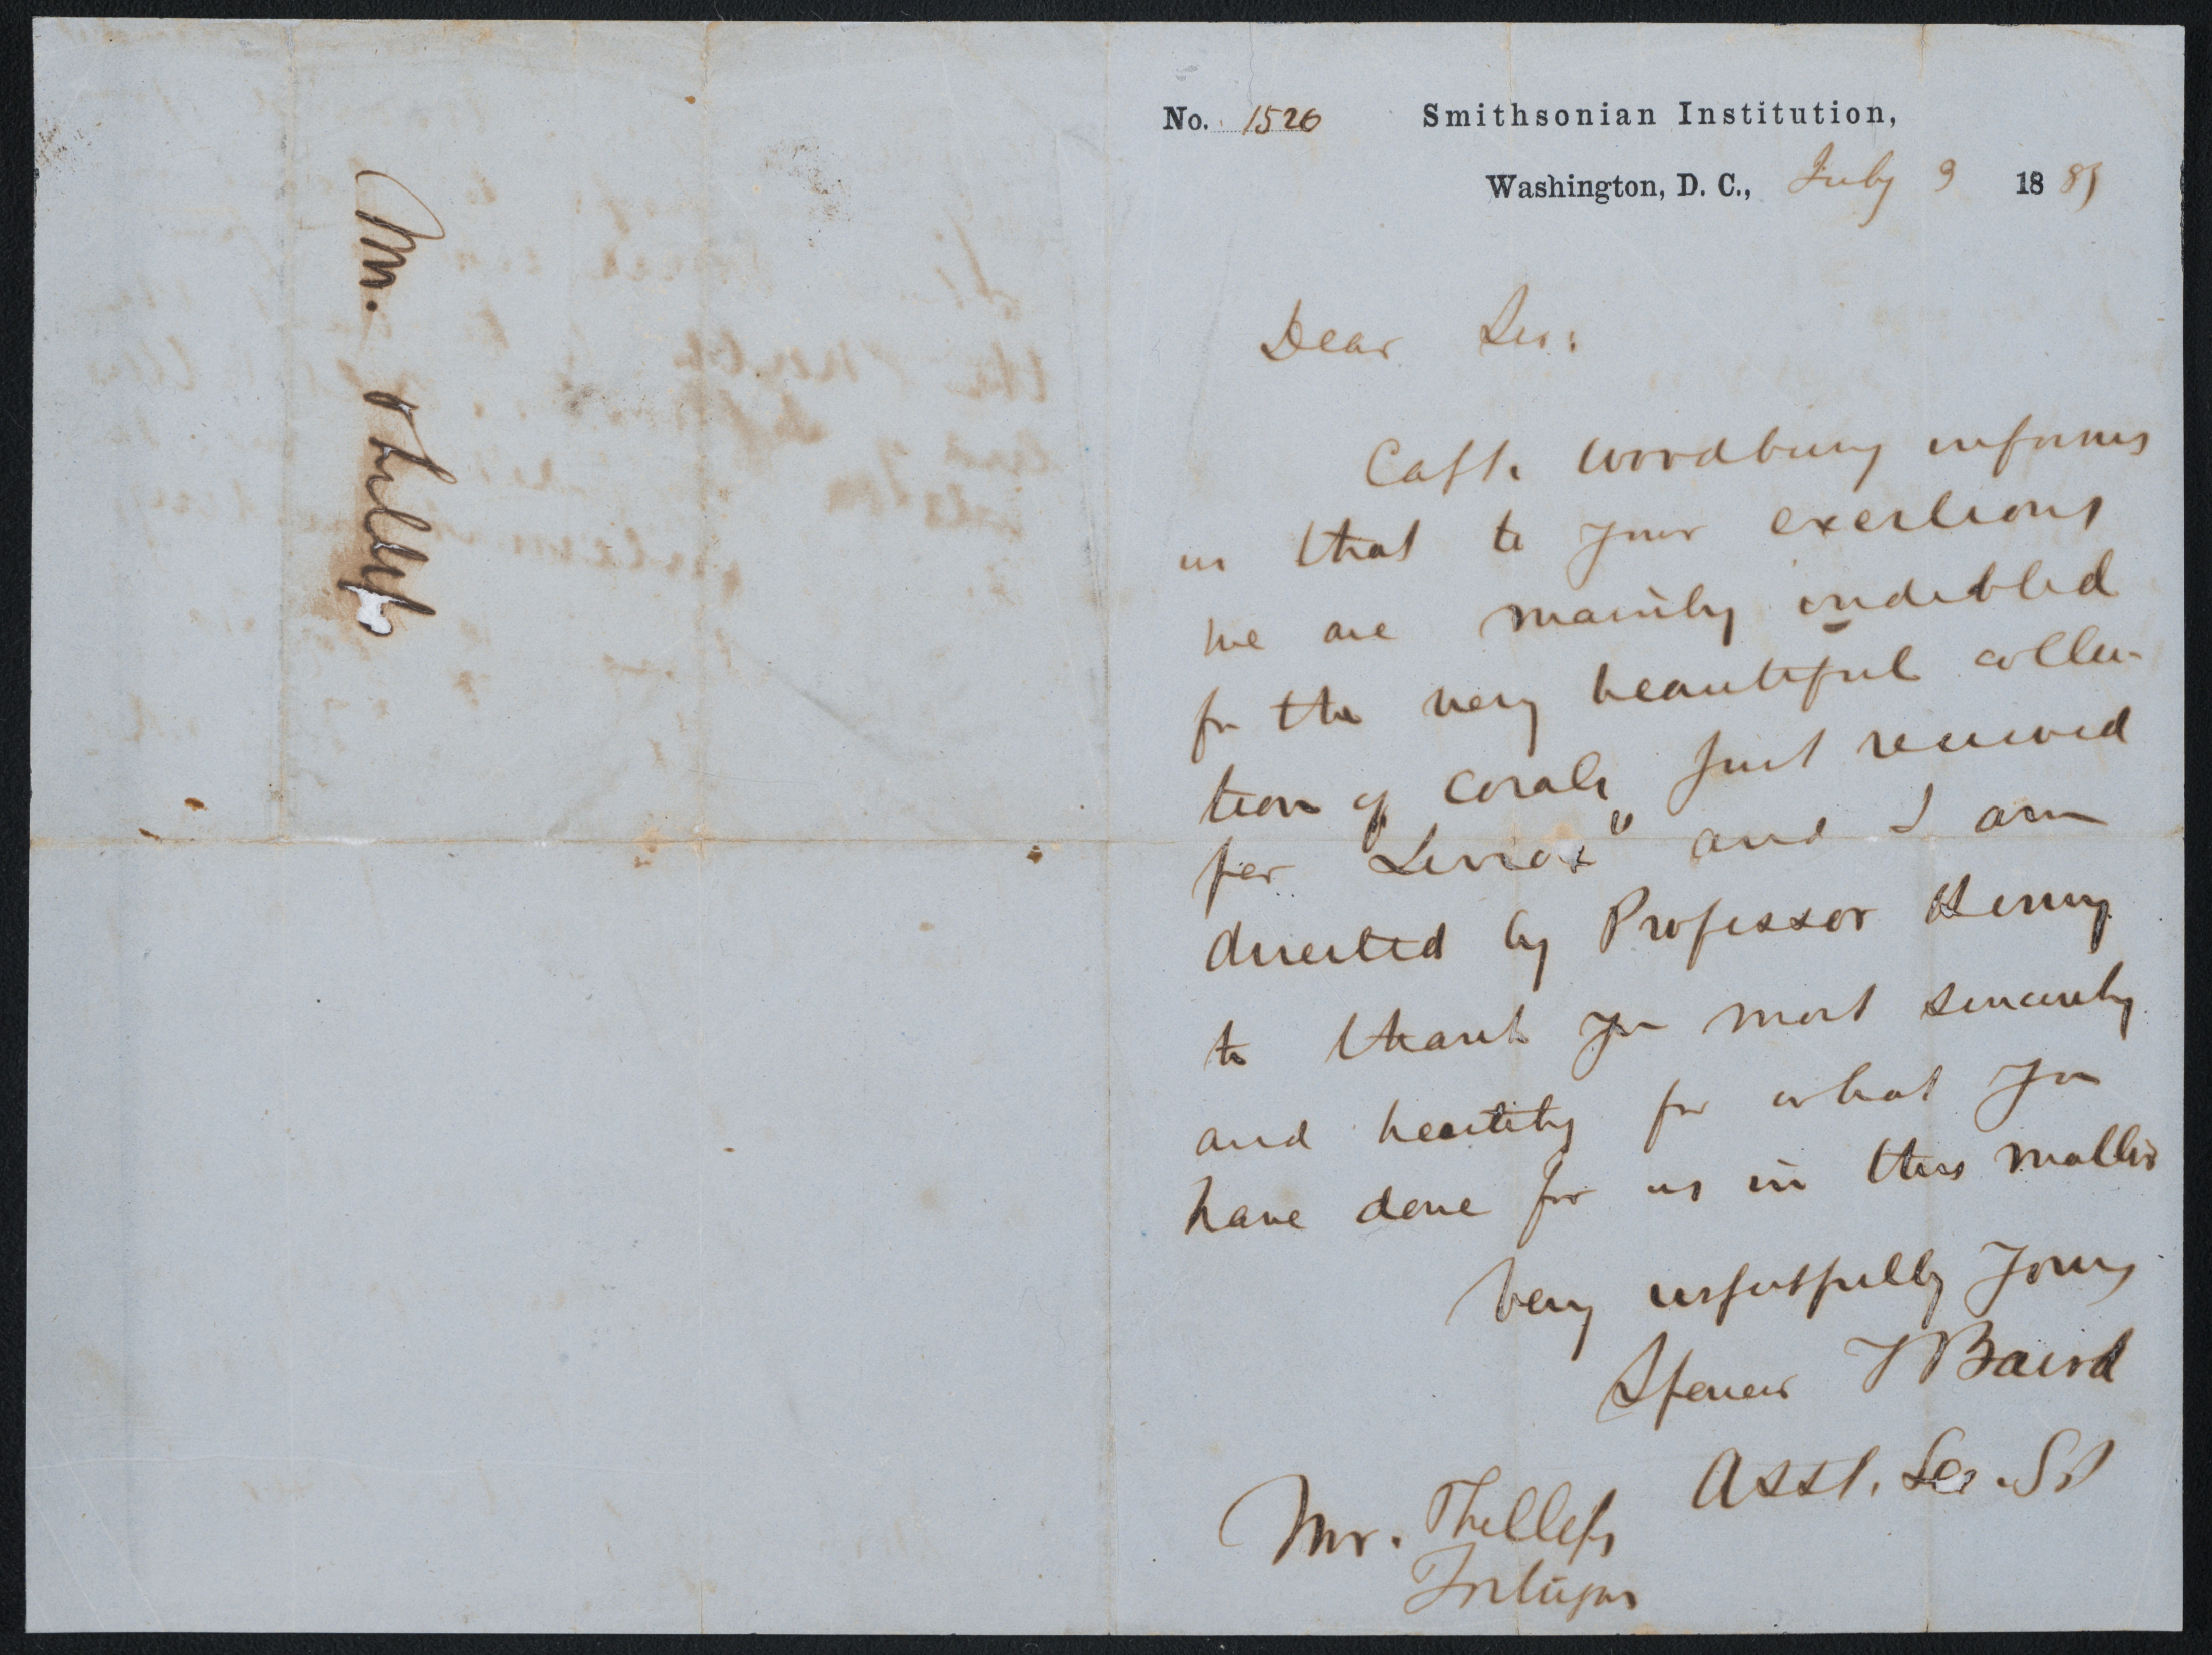 Mr. Phillips
No. 1526 Smithsonian Institution,
Washington, D. C., July 9 18
Dear Sir:
Capt. Woodbury informs
us that to your exertions
we are mainly indebted
for the very beautiful collec-
tion of corals just received
per "Lenox" and I am
directed by Professor Henry
to thank you most sincerely
and heartily for what you
have done for us in this matter
Very respectfully yours
Spencer F Baird
Asst. Sec. S I
Mr. Phillips
Tortugas